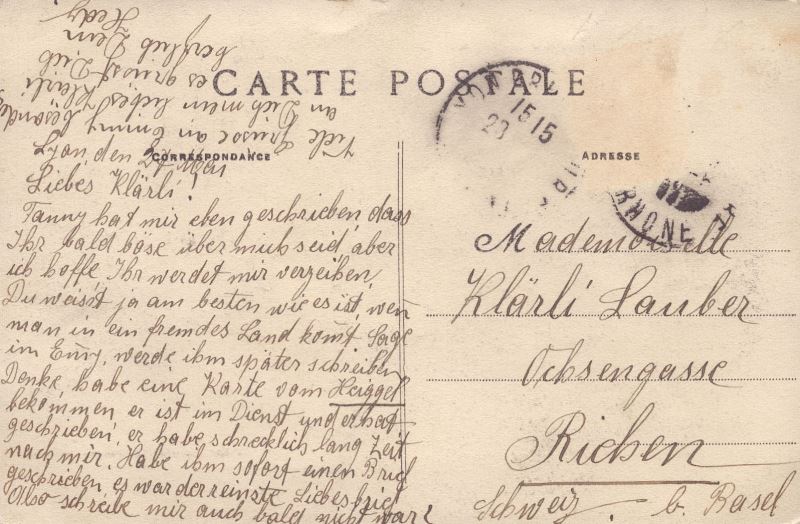 CARTE POSTALE
CORRESPONDANCE
ADRESSE
Lyon, den 27. März
Liebes Klärli!
Fanny hat mir eben geschrieben, dass
Ihr bald böse über mich seid, aber
ich hoffe, Ihr werdet mir verzeihen,
Du weisst ja am besten wie es ist, wen̄
man in ein fremdes Land kom̄t. Sage
im Em̄y, werde ihm später schreiben
Denke, habe eine Karte vom Heiggel
bekommen, er ist im Dienst und er hat
geschrieben, er habe schrecklich lang Zeit
nach mir. Habe ihm sofort einen Brief
geschrieben es war der reinste Liebesbrief
Also schreibe mir auch bald nicht war?
Viele Grüsse an Emmy besonders
an Dich mein liebes Klärli
es grüsst Dich
herzlich Dein
Hedy
15 15
RHONE
Mademoiselle
Klärli Lauber
Ochsengasse
Riehen
Schweiz. b. Basel